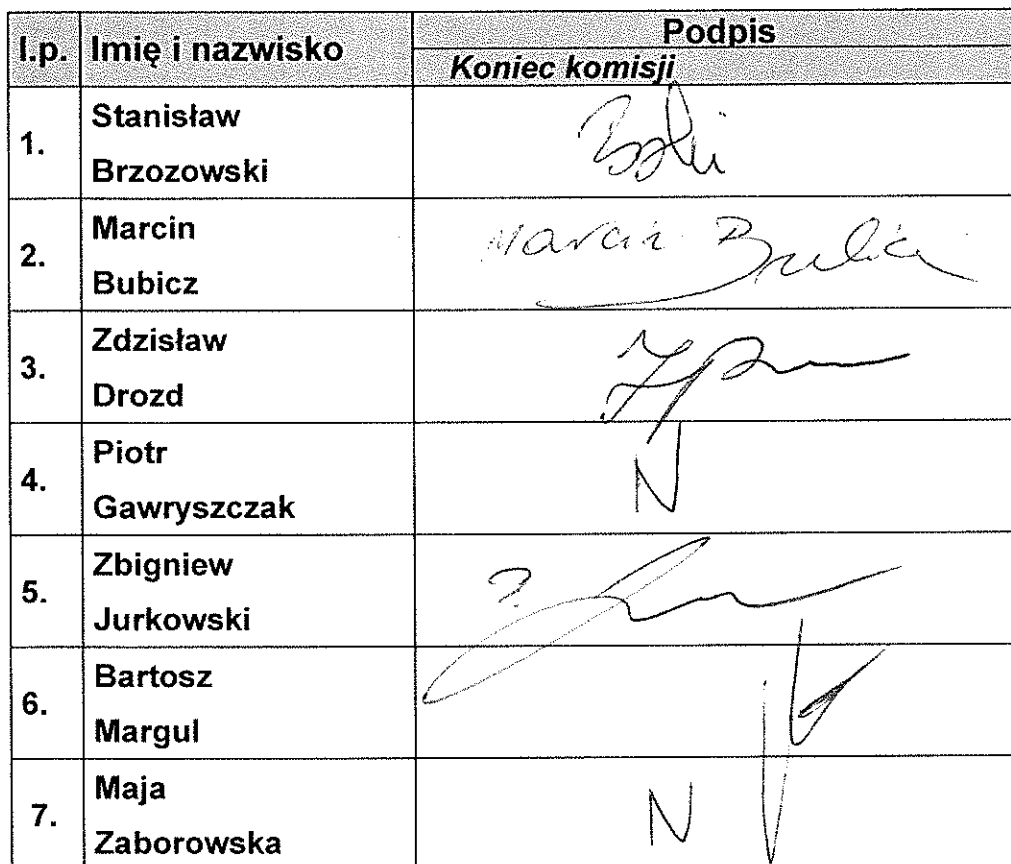 l.p. Imię i nazwisko Podpis
Koniec komisji
1. Stanisław
Brzozowski
2. Marcin
Bubicz
Marcin
3. Zdzisław
Drozd
4. Piotr
Gawryszczak
N
5. Zbigniew
Jurkowski
6. Bartosz
Margul
7. Maja
Zaborowska
N